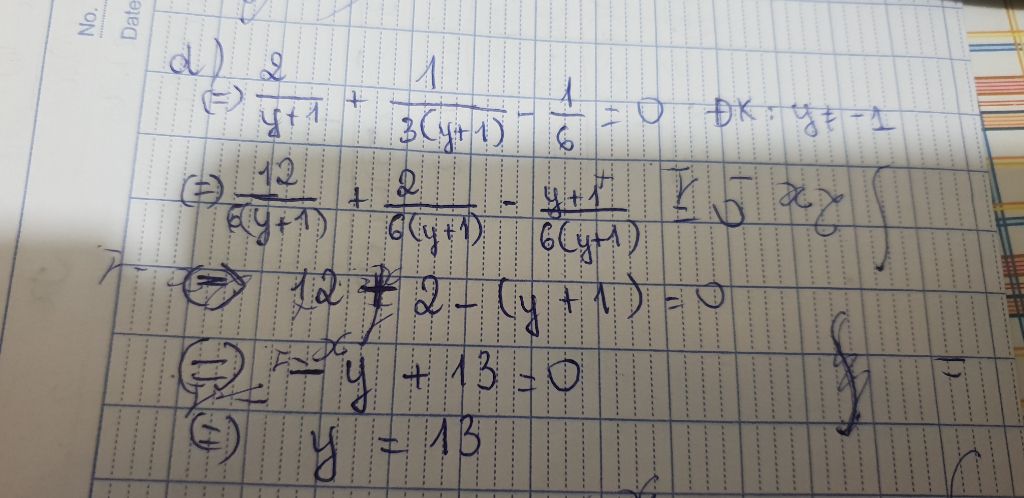 No.
Date
d)
(=) 2/(y+1) + 1/(3(y+1)) - 1/6 = 0 ĐK: y ≠ -1
(=) 12/(6(y+1)) + 2/(6(y+1)) - (y+1)/(6(y+1)) = 0
(=) 12 + 2 - (y + 1) = 0
(=) - y + 13 = 0
(=) y = 13